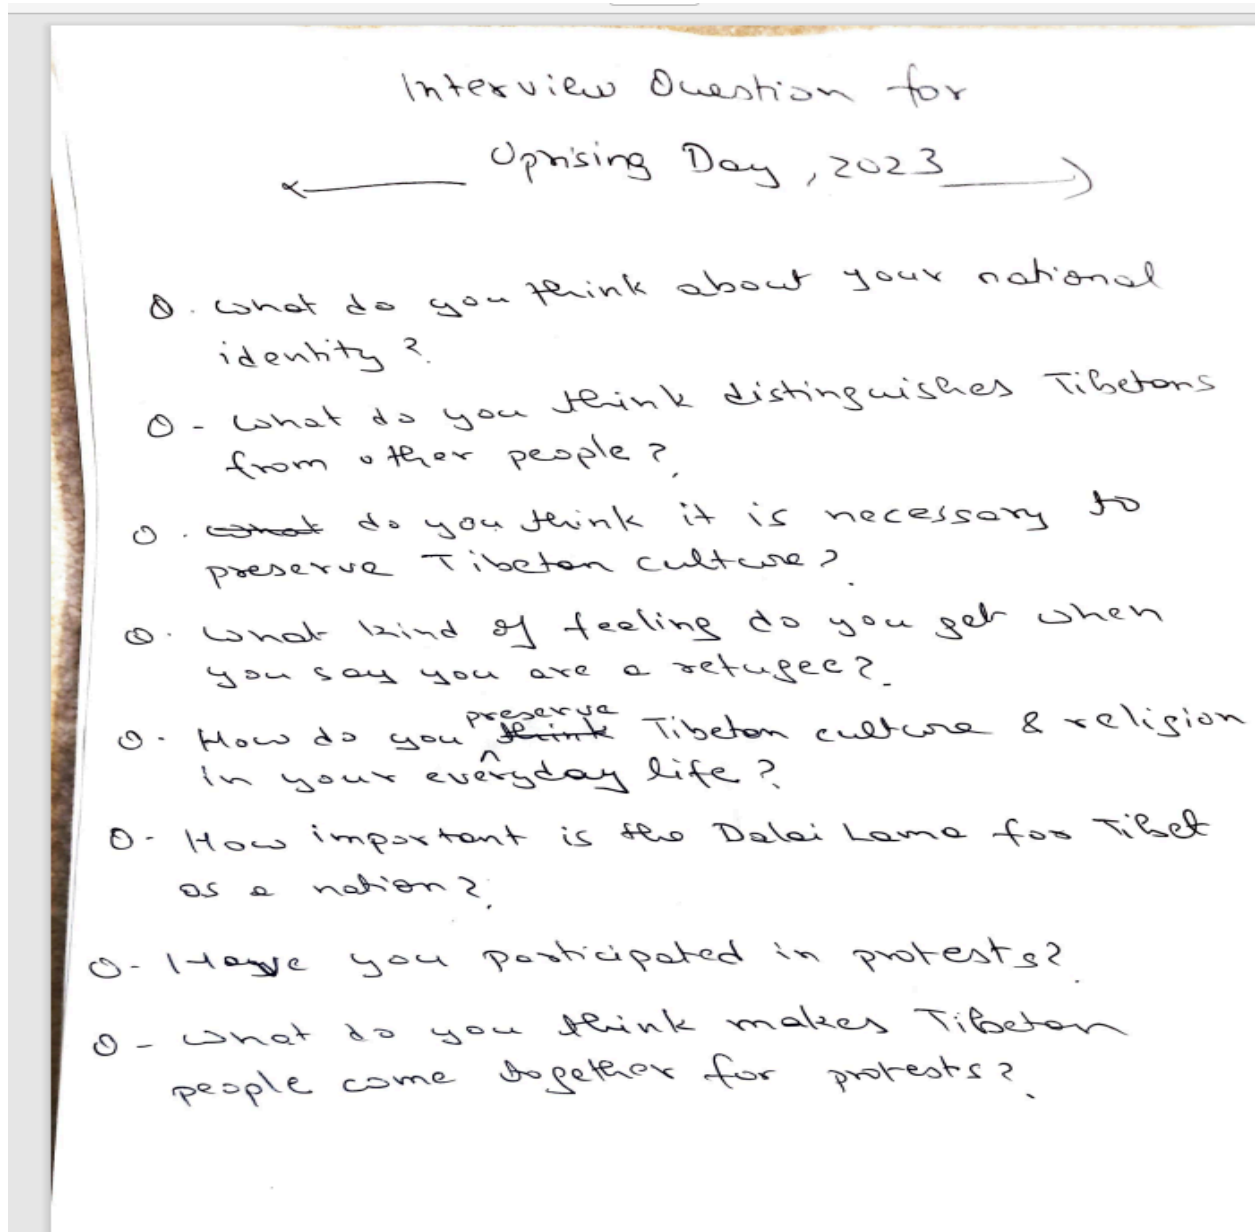 Interview Question for
Uprising Day, 2023
Q. What do you think about your national
identity?
Q - What do you think distinguishes Tibetans
from other people?
Q. ~~What~~ do you think it is necessary to
preserve Tibetan culture?
Q. What kind of feeling do you get when
you say you are a refugee?
preserve
Q. How do you ~~think~~ ^ Tibetan culture & religion
in your everyday life?
Q - How important is the Dalai Lama for Tibet
as a nation?
Q - Have you participated in protests?
Q - What do you think makes Tibetan
people come together for protests?